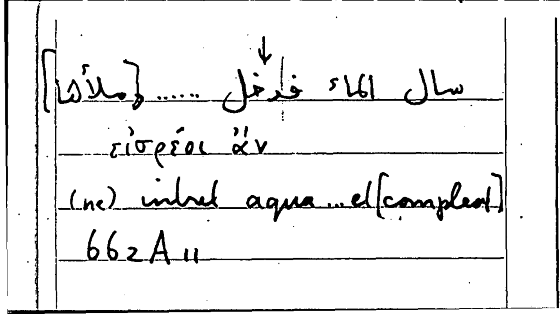 سال الماء فدخل ...... [ملأها]
εἰσρέοι ἄν
(ne) intret aqua ... et [compleat]
662 A 11